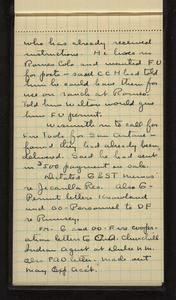 who has already received
instructions. He lives in
Romeo Colo and wanted F U
for posts - said CCH had told
him he could have them for
use on ranch at Romeo.
Told him Wilton would give
him F U permit.
Wismith in to call for
Fire Tools for San Antone -
found they had already been
delivered. Said he had sent
in $500 payment on sale.
Dictated G&ST memos
re Jicarilla Res. Also G-
Permit letters
and OO-Personnel to DF
re Rumsey.
PM - G and OO-Fire Cooper-
ation letters to C.A. Churchill
Indian Agent at Dulce N.M.
Also P&O letter. Made out
May Exp Acct.